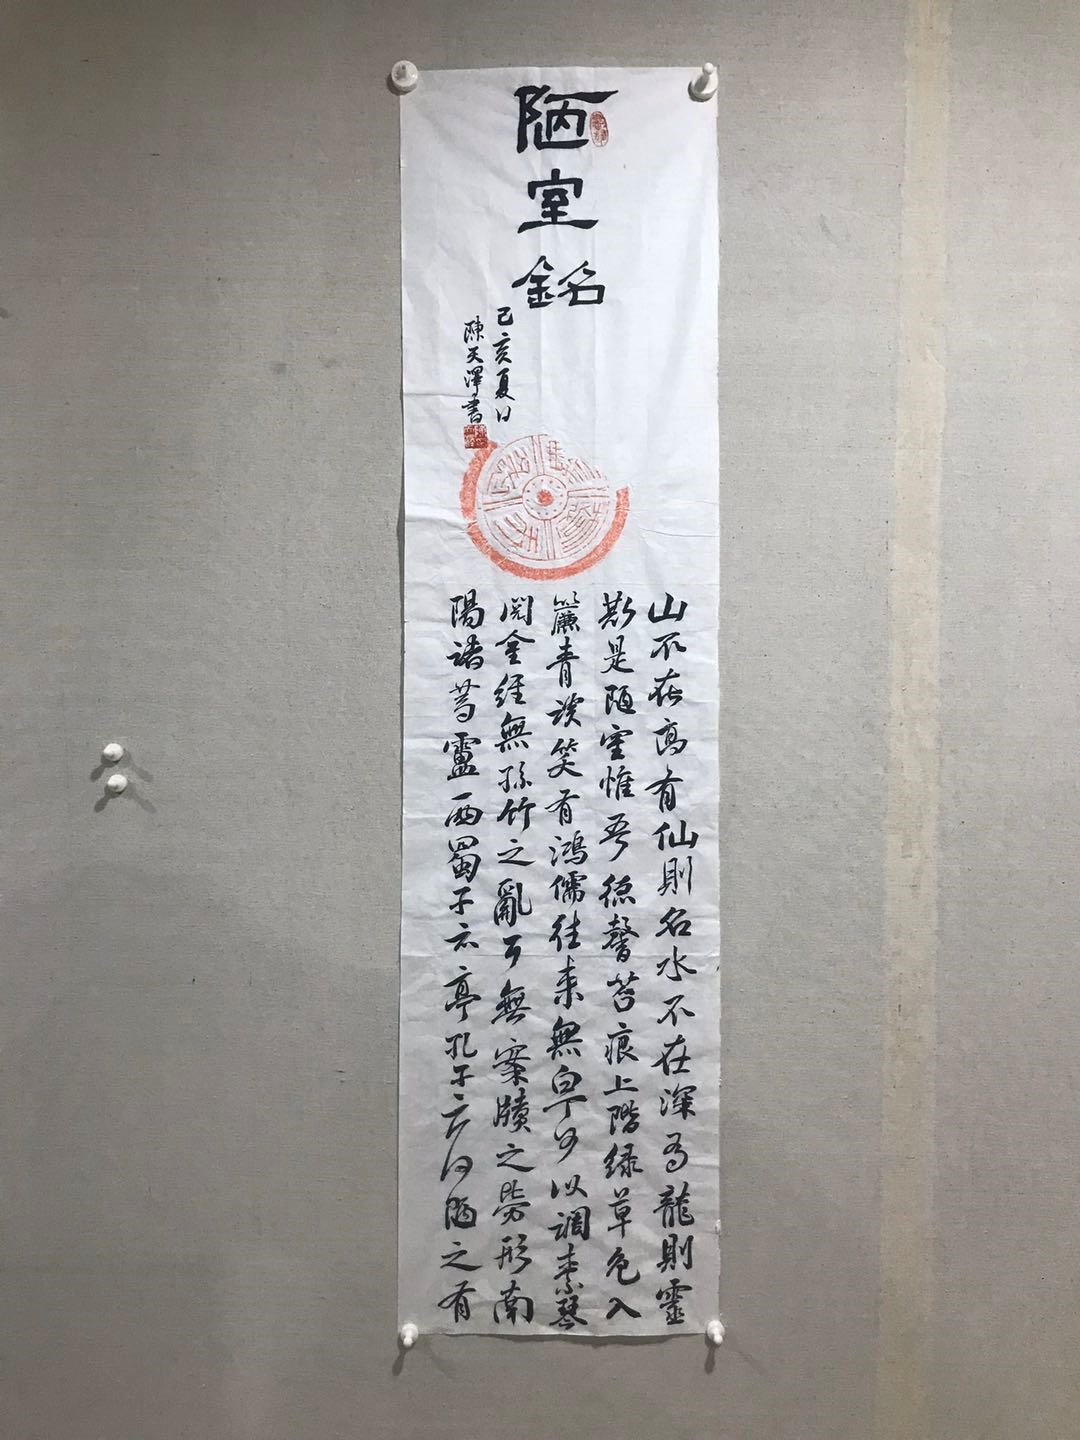 陋室銘
己亥夏日
陳天澤書
山不在高有仙則名水不在深為龍則靈
斯是陋室惟吾德馨苔痕上階緑草色入
簾青談笑有鴻儒往来無白丁可以調素琴
閲金經無絲竹之亂耳無案牘之勞形南
陽諸葛盧西蜀子云亭孔子云何陋之有